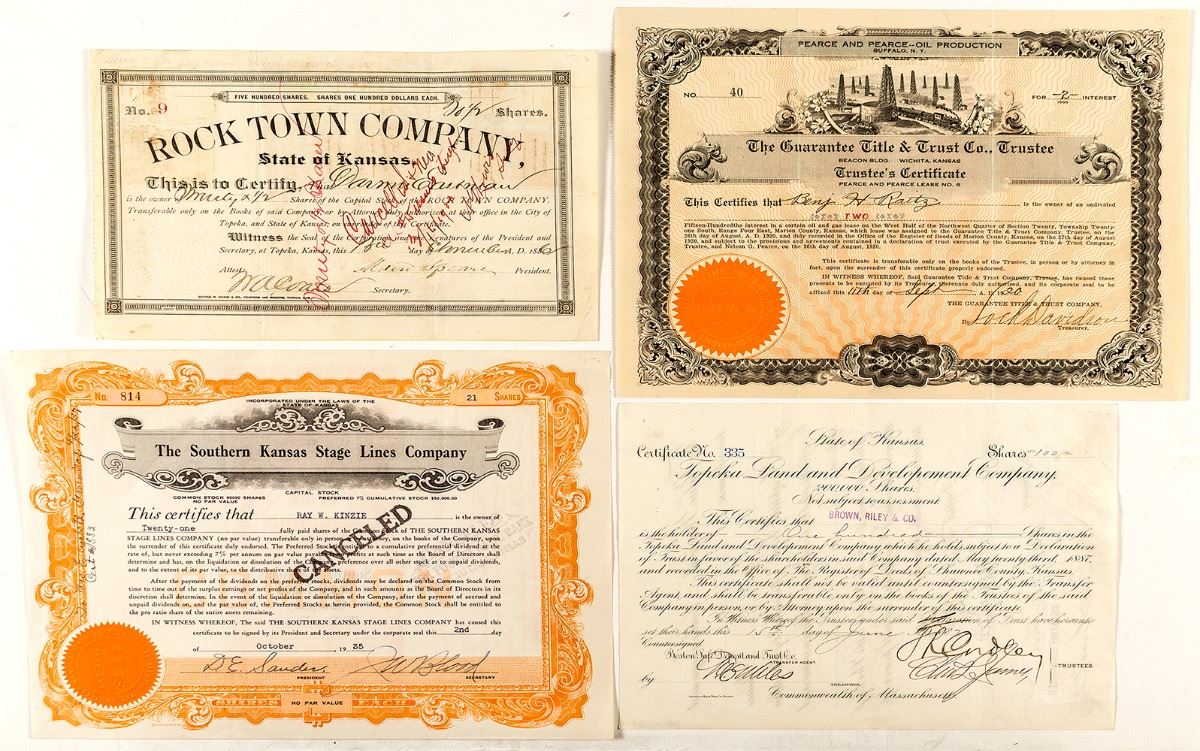 FIVE HUNDRED SHARES. SHARES ONE HUNDRED DOLLARS EACH.
No. 9 Shares.
ROCK TOWN COMPANY,
State of Kansas.
This is to Certify,
is the owner of Share of the Capital Stock of the ROCK TOWN COMPANY.
Transferable only on the Books of said Company by Attorney authorized at the office in the City of
Topeka, and State of Kansas, on of this Certificate.
Witness the Seal of the Corporation and Signatures of the President and
Secretary, at Topeka, Kansas, this day of A.D. 188
Attest: President.
Secretary.
PEARCE AND PEARCE--OIL PRODUCTION
BUFFALO, N. Y.
NO. 40 FOR INTEREST
The Guarantee Title & Trust Co., Trustee
BEACON BLDG. WICHITA, KANSAS
Trustee's Certificate
PEARCE AND PEARCE LEASE NO. 6
This Certifies that Benj. H.
TWO
Fifteen-Hundredths interest in a certain oil and gas lease on the West Half of the Northwest Quarter of Section Twenty, Township Twenty-
one South, Range Four East, Marion County, Kansas, which lease was assigned to the Guarantee Title & Trust Company, Trustee, on the
26th day of August, A. D. 1920, and duly recorded in the Office of the Register of Deeds of Marion County, Kansas on the day of August
1920, and subject to the provisions and agreements contained in a declaration of trust executed by the Guarantee Title & Trust Company,
Trustee, and Nelson G. Pearce, on the 26th day of August, 1920.
This certificate is transferable only on the books of the Trustee, in person or by attorney in
fact, upon the surrender of this certificate properly endorsed.
IN WITNESS WHEREOF, Said Guarantee Title & Trust Company, Trustee, has caused these
presents to be executed by its Treasurer, thereunto duly authorized, and its corporate seal to be
affixed this 11th day of Sept A. D. 1920
THE GUARANTEE TITLE & TRUST COMPANY.
By Davidson
Treasurer.
INCORPORATED UNDER THE LAWS OF THE
STATE OF KANSAS
No 814 21 SHARES
The Southern Kansas Stage Lines Company
CAPITAL STOCK
COMMON STOCK 90000 SHARES PREFERRED 7% CUMULATIVE STOCK $50,000.00
NO PAR VALUE
This certifies that RAY W. KINZIE is the owner of
Twenty-one fully paid shares of the Common Stock of THE SOUTHERN KANSAS
STAGE LINES COMPANY (no par value) transferable only in person or by attorney, on the books of the Company, upon
the surrender of this certificate duly endorsed. The Preferred Stock is entitled to a cumulative preferential dividend at the
rate of, but never exceeding 7% per annum on par value payable at such time as the Board of Directors shall
determine and has, on the liquidation or dissolution of the Company, preference over all other stock as to unpaid dividends,
and to the extent of its par value, to the distributive share of the assets.
After the payment of the dividends on the preferred stocks, dividends may be declared on the Common Stock from
time to time out of the surplus earnings or net profits of the Company, and in such amounts as the Board of Directors in its
discretion shall determine. In the event of the liquidation or dissolution of the Company, after the payment of accrued and
unpaid dividends on, and the par value of, the Preferred Stocks as herein provided, the Common Stock shall be entitled to
the pro ratio share of the entire assets remaining.
IN WITNESS WHEREOF, The said THE SOUTHERN KANSAS STAGE LINES COMPANY has caused this
certificate to be signed by its President and Secretary under the corporate seal this 2nd day
of October 19 35
CANCELED
PRESIDENT SECRETARY
SHARES NO PAR VALUE EACH
State of Kansas.
Certificate No. 335 Shares 100
Topeka Land and Developement Company,
200000 Shares,
Not subject to assessment
This Certifies that BROWN, RILEY & CO.
is the holder of One hundred Shares in the
Topeka Land and Developement Company which he holds subject to a Declaration
of Trust in favor of the shareholders in said Company dated May twenty third, 1887,
and recorded in the Office of the Register of Deeds of Shawnee County, Kansas.
This certificate shall not be valid until countersigned by the Transfer
Agent, and shall be transferable only on the books of the Trustees of the said
Company in person, or by Attorney upon the surrender of this certificate
In Witness Whereof the Trustees under said of Trust have hereunto
set their hands this 15th day of June
Countersigned
Boston Safe Deposit and Trust Co.
TRANSFER AGENT.
TRUSTEES.
by
TREASURER.
Commonwealth of Massachusetts